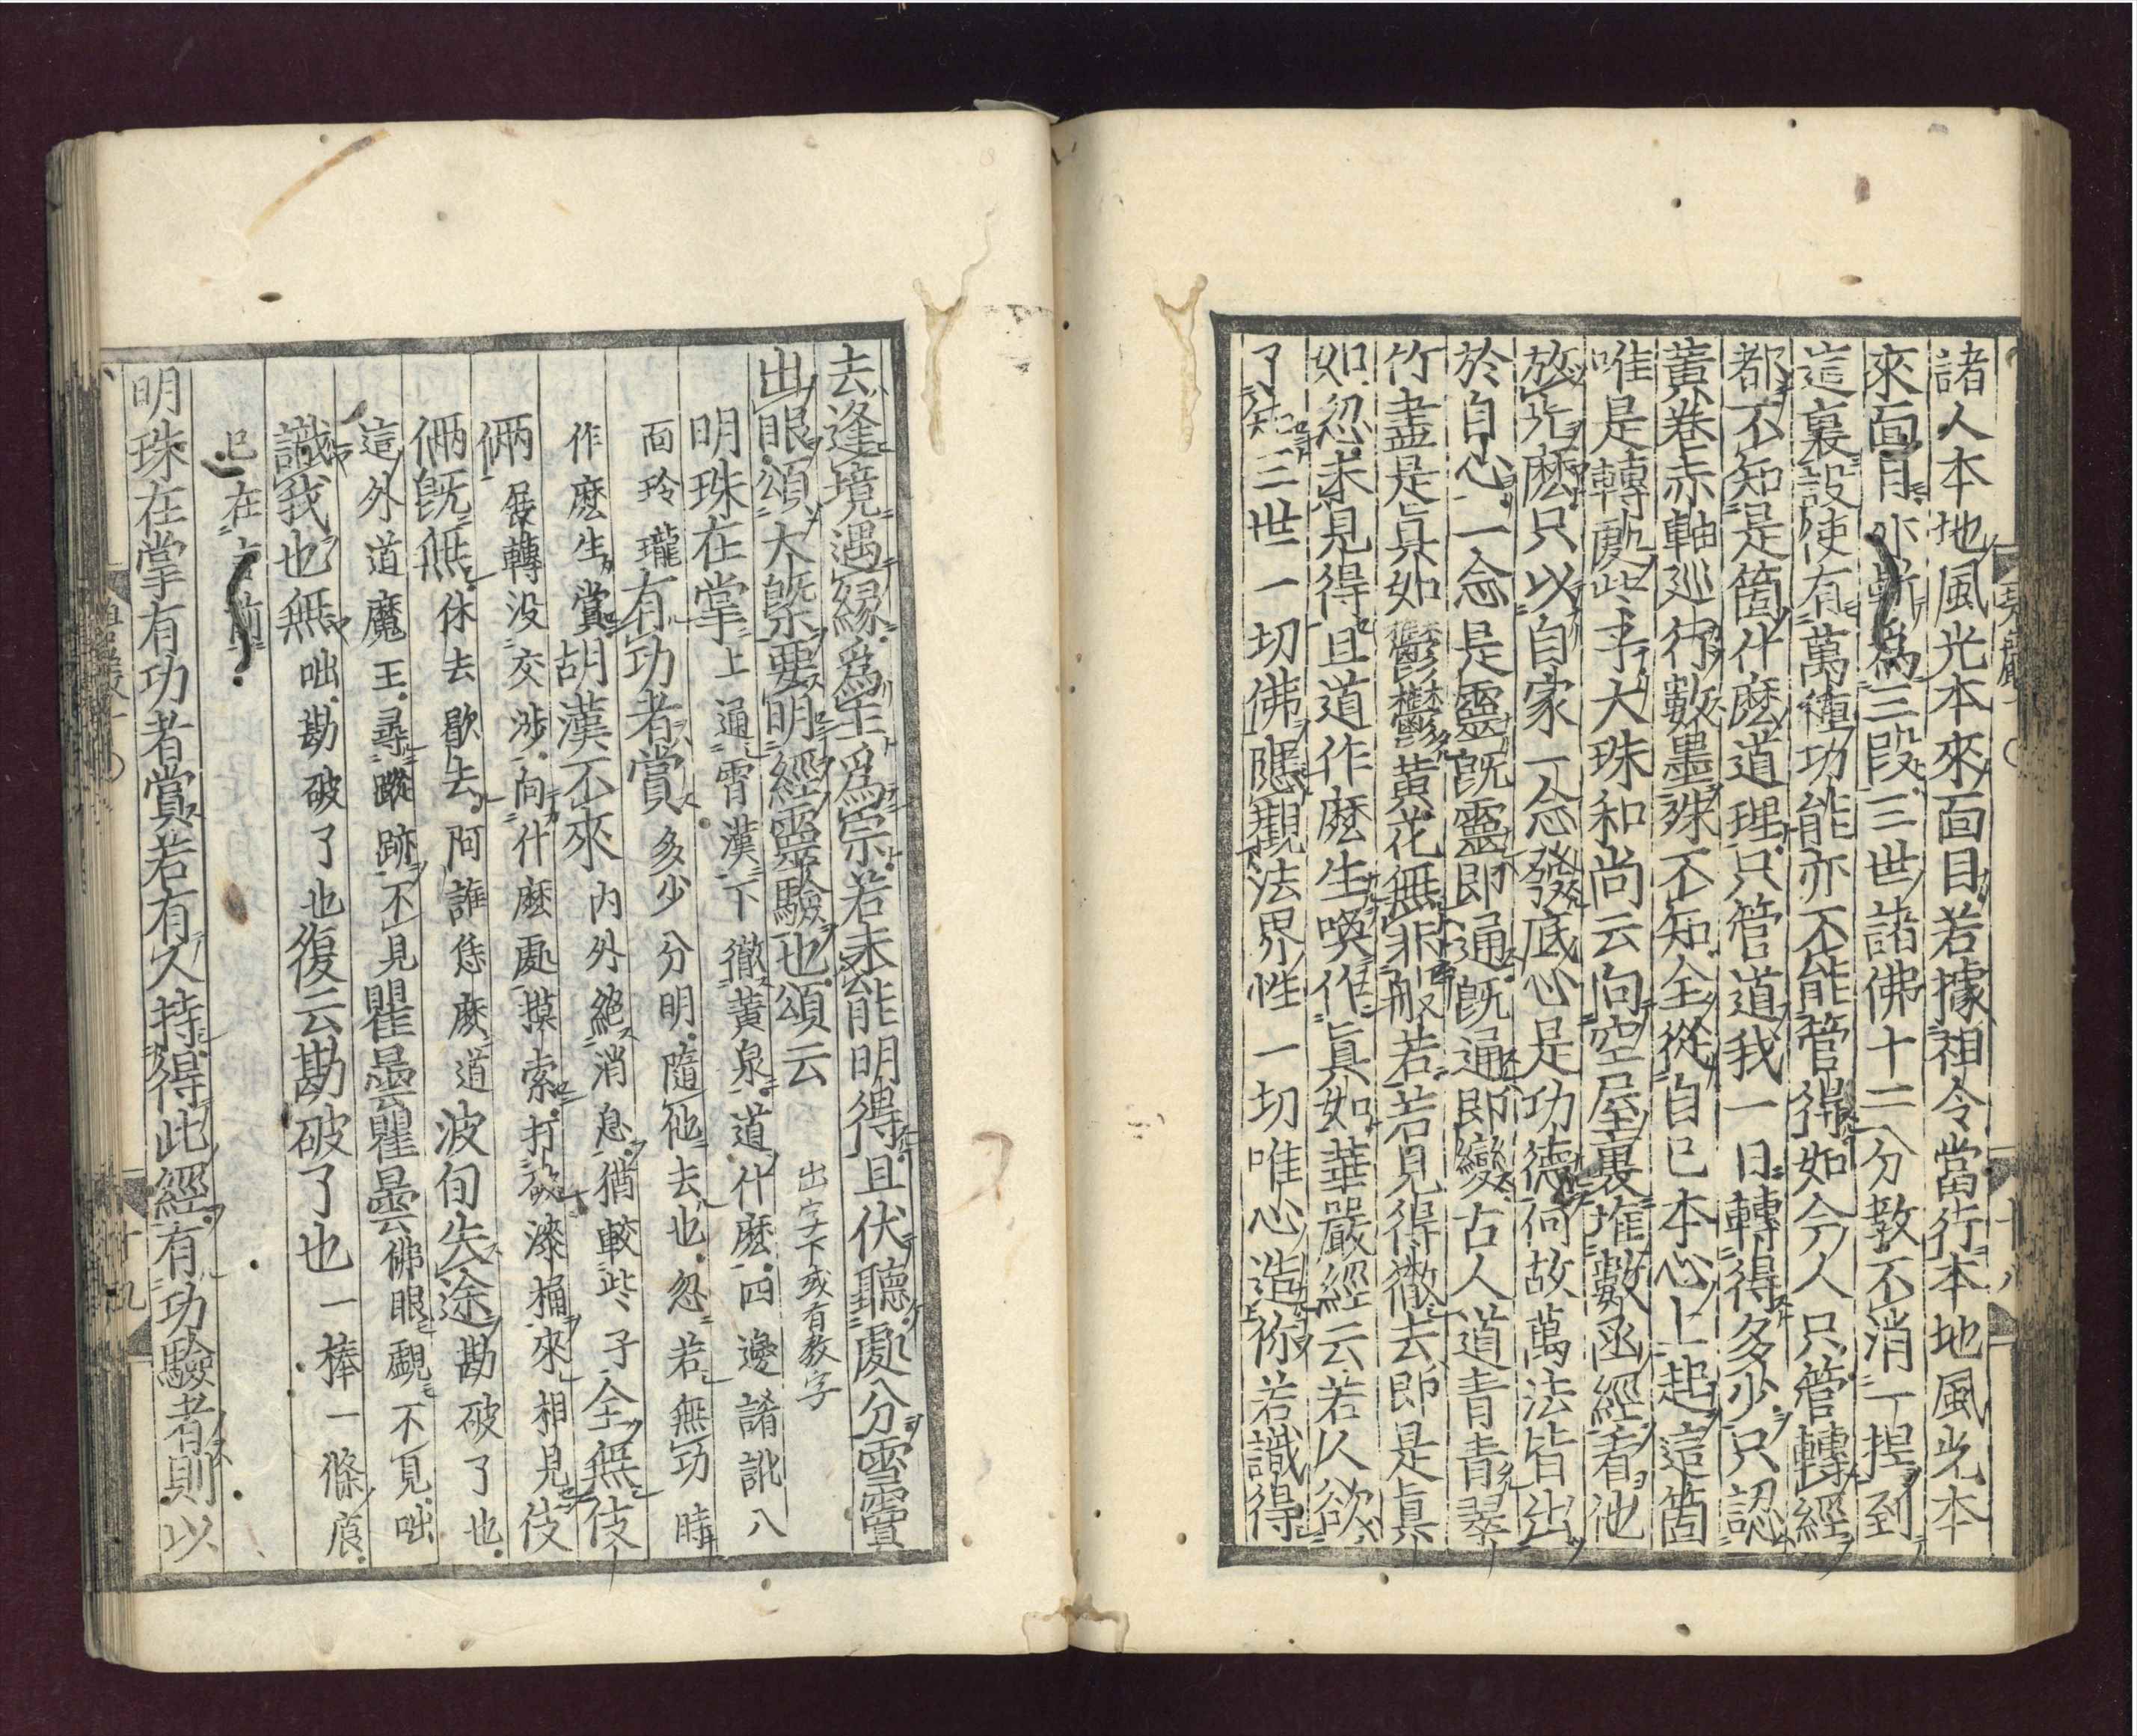 諸人本地風光本來面目若據祖令當行本地風光本
來面目亦斬爲三段三世諸佛十二分教不消一捏到
這裏設使有萬種功能亦不能管得如今人只管轉經
都不知是箇什麽道理只管道我一日轉得多少只認
黃卷赤軸巡行數墨殊不知全從自己本心上起這箇
唯是轉處些子大珠和尚云向空屋裏堆數函經看他
放光麽只以自家一念發底心是功德何故萬法皆出
於自心一念是靈旣靈即通旣通即變古人道青青翠
竹盡是眞如鬱鬱黃花無非般若若見得徹去即是眞
如忽未見得且道作麽生喚作眞如華嚴經云若人欲
了知三世一切佛應觀法界性一切唯心造你若識得
十八
去逢境遇緣爲主爲宗若未能明得且伏聽處分雪竇
出眼頌大槩要明經靈驗也頌云 出字下或有教字
明珠在掌 上通霄漢下徹黃泉道什麽四邊誵訛八
面玲瓏 有功者賞 多少分明隨他去也忽若無功時
作麽生賞 胡漢不來 內外絕消息猶較些子 全無伎
倆 展轉沒交涉向什麽處摸索打破漆桶來相見 伎
倆旣無 休去歇去阿誰恁麽道 波旬失途 勘破了也
這外道魔王尋蹤跡不見 瞿曇瞿曇 佛眼覷不見咄
識我也無 咄勘破了也 復云勘破了也 一棒一條痕
已在言前
明珠在掌有功者賞若有人持得此經有功驗者則以
十九